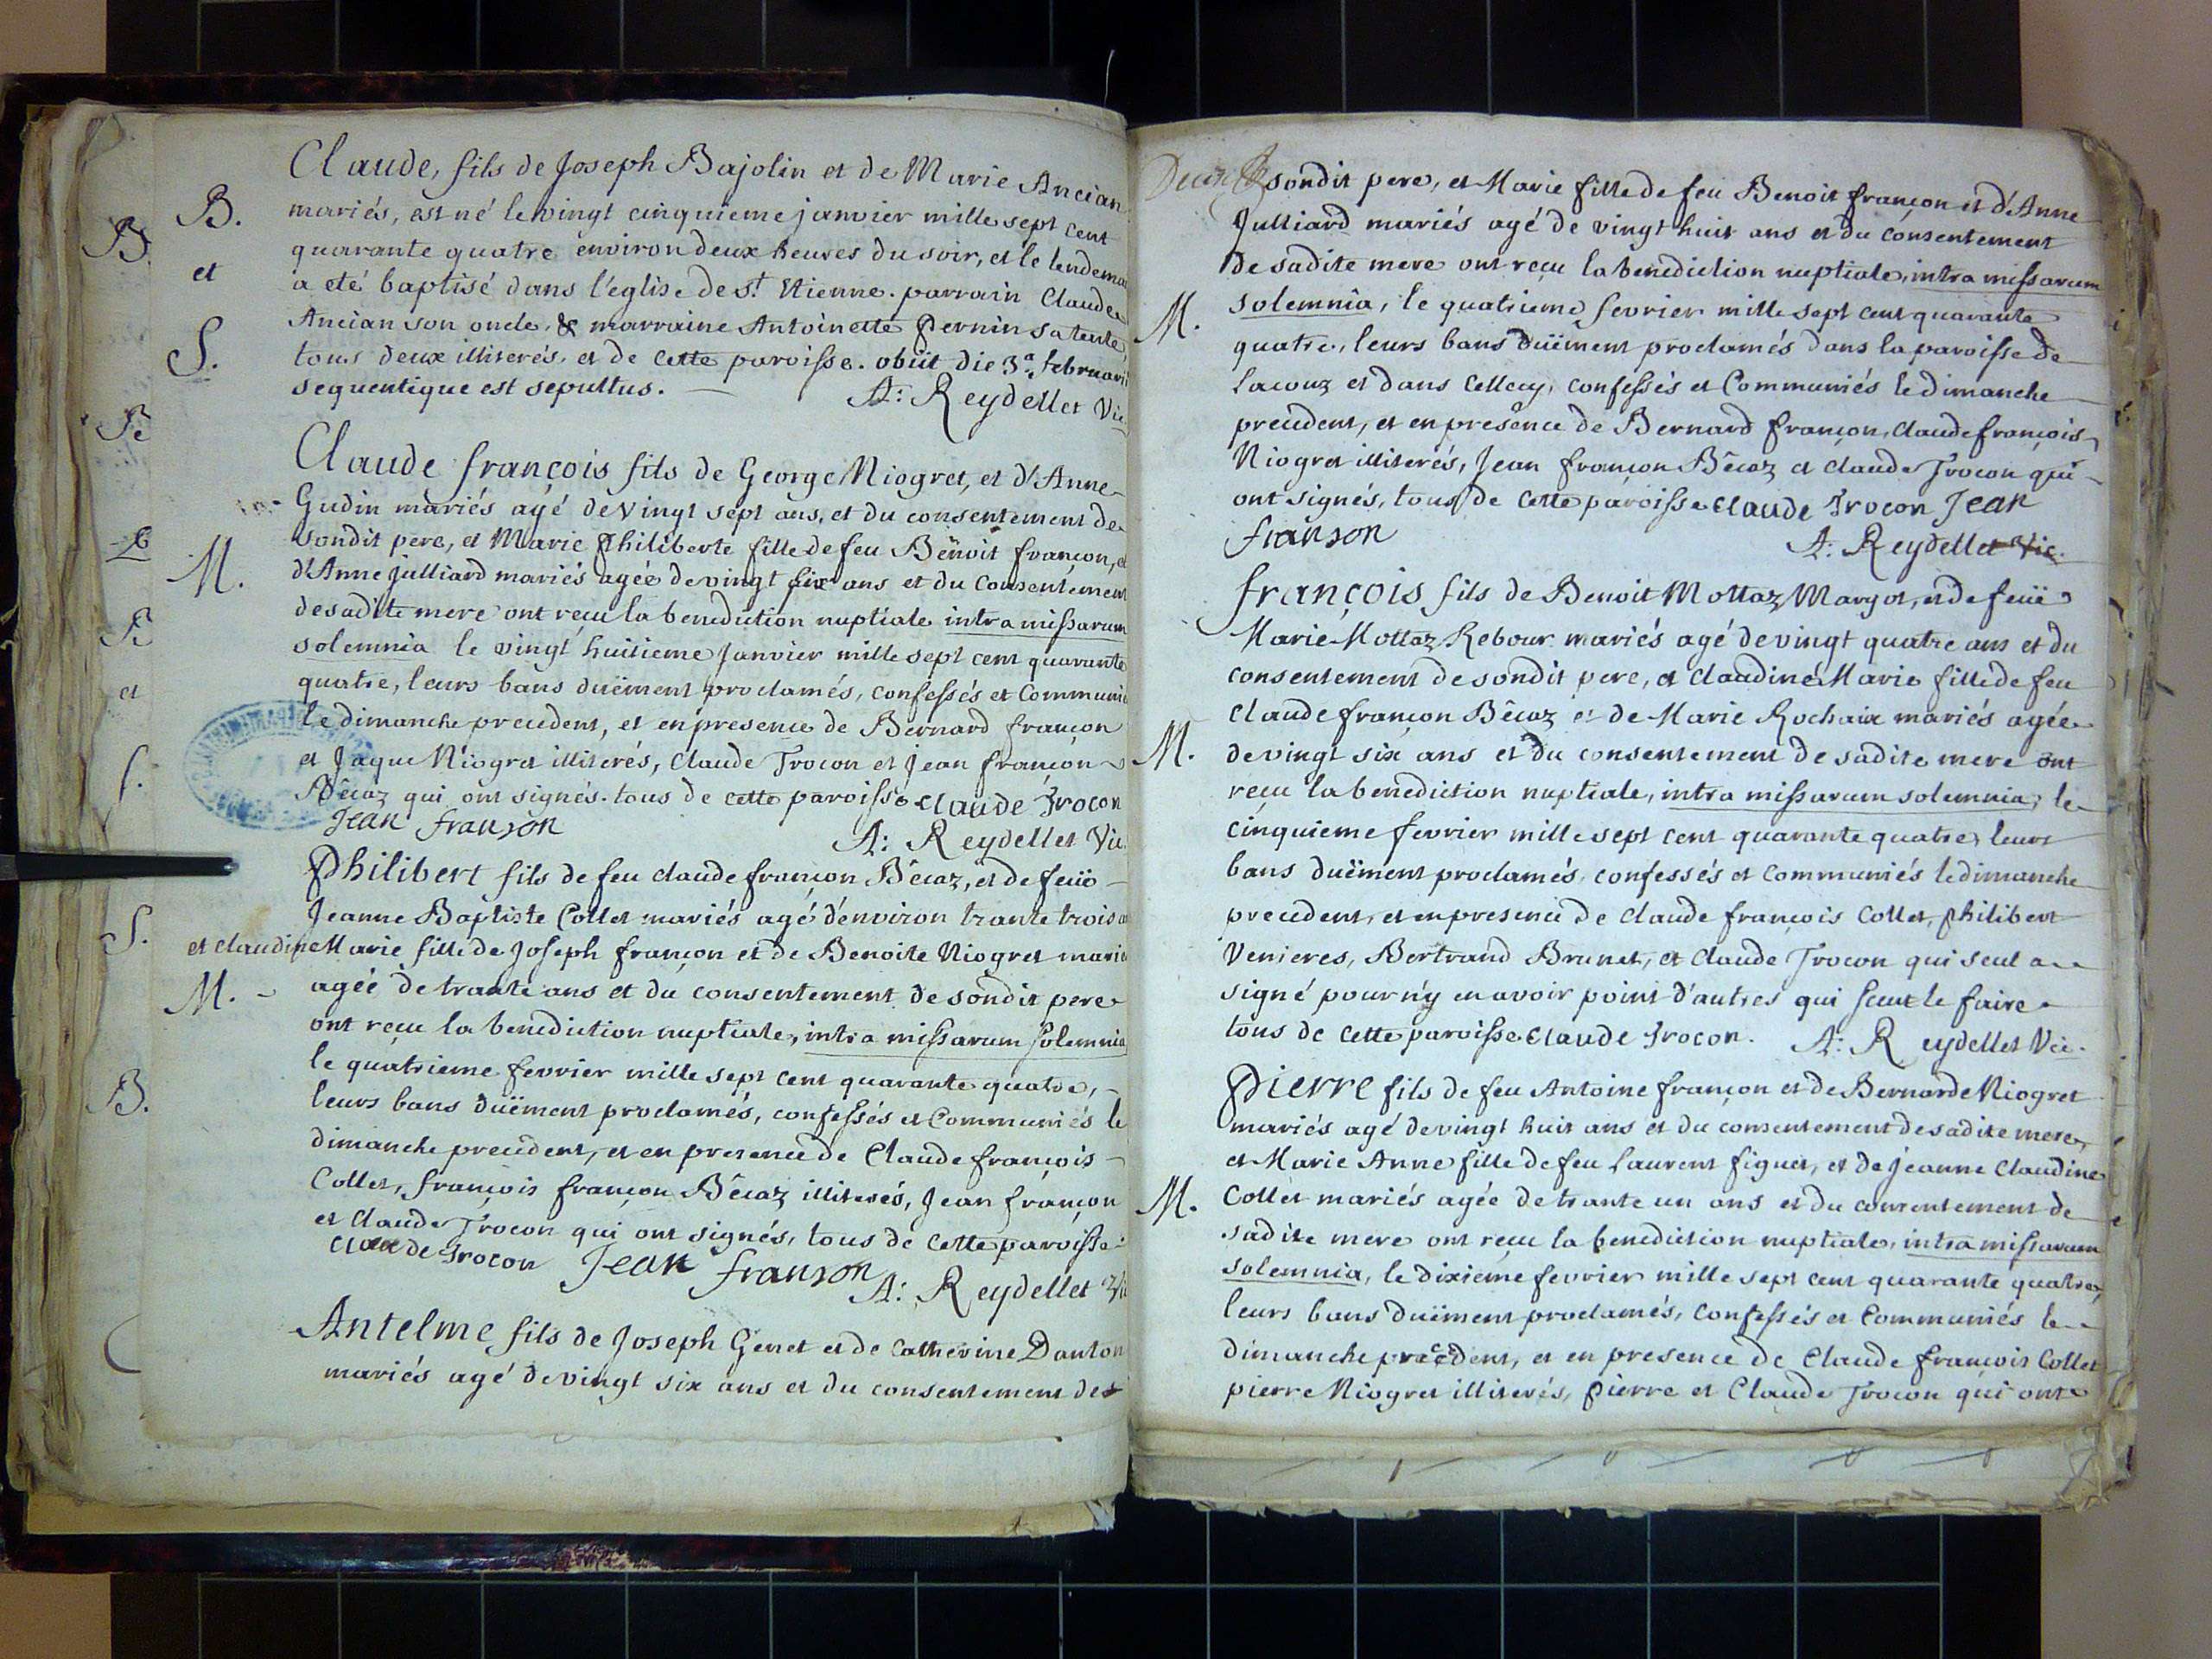 Claude, fils de Joseph Bajolin et de Marie Ancian
B. mariés, est né le vingt cinquieme janvier mille sept cent
B.
quarante quatre environ deux heures du soir, et le lendemai
et
a eté baptisé dans l'eglise de St. Etienne. parrain Claude
Ancian son oncle, & marraine Antoinette Pernin sa tente,
S. tous deux illiterés, et de cette paroisse. obiit die 3a. februari
sequentique est sepultus. A: Reydellet Vic.
Claude françois fils de George Niogret, et d'Anne
Gudin mariés agé de vingt sept ans, et du consentement de
sondit pere, et Marie Philiberte fille de feu Benoit françon, et
M. d'Anne Julliard mariés agée de vingt six ans et du Consentement
de sadite mere ont reçu la benediction nuptiale intra missarum
solemnia le vingt huitieme Janvier mille sept cent quarante
quatre, leurs bans duëment proclamés, confessés et Communi
et
le dimanche precedent, et en presence de Bernard françon
et Jaque Niogret illiterés, Claude Trocon et Jean françon
Bêcaz qui ont signés. tous de cette paroisse Claude Trocon
Jean franson A: Reydellet Vic.
Philibert fils de feu claude françon Bêcaz, et de feüe
Jeanne Baptiste Collet mariés agé d'environ trante trois a
S. et claudine Marie fille de Joseph françon et de Benoite Niogret marié
M. agée de trante ans et du consentement de sondit pere
ont reçu la benediction nuptiale, intra missarum solemnia
le quatrieme fevrier mille sept cent quarante quatre,
B. leurs bans duëment proclamés, confessés et Communiés le
dimanche precedent, et en presence de Claude françois
Collet, françois françon Bêcaz illiterés, Jean françon
et Claude Trocon qui ont signés, tous de cette paroisse.
claude Trocon Jean franson A: Reydellet Vi
Antelme fils de Joseph Genet et de Catherine Danton
mariés agé de vingt six ans et du consentement de
sondit pere, et Marie fille de feu Benoit françon et d'Anne
Julliard mariés agé de vingt huit ans et du consentement
de sadite mere ont reçu la benediction nuptiale, intra missarum
M. solemnia, le quatrieme fevrier mille sept cent quarante
quatre, leurs bans duëment proclamés dans la paroisse de
Lacouz et dans cellecy, confessés et Communiés le dimanche
precedent, et en presence de Bernard françon, Claude françois
Niogret illiterés, Jean françon Bêcaz et Claude Trocon qui
ont signés, tous de cette paroisse Claude Trocon Jean
franson A: Reydellet Vic.
françois fils de Benoit Mottaz Margot, et de feuë
Marie Mottaz Rebour mariés agé de vingt quatre ans et du
consentement de sondit pere, et claudine Marie fille de feu
Claude françon Bêcaz et de Marie Rochaix mariés agée
M. de vingt six ans et du consentement de sadite mere ont
reçu la benediction nuptiale, intra missarum solemnia, le
cinquieme fevrier mille sept cent quarante quatre, leurs
bans duëment proclamés, confessés et communiés le dimanche
precedent, et en presence de Claude françois Collet, Philibert
Venieres, Bertrand Brunet, et Claude Trocon qui seul a
signé pour n'y en avoir point d'autres qui sceut le faire
tous de cette paroisse. Claude Trocon. A: Reydellet Vic.
Pierre fils de feu Antoine françon et de Bernarde Niogret
mariés agé de vingt huit ans et du consentement de sadite mere,
et Marie Anne fille de feu Laurent figuet, et de jeanne Claudine
M. Collet mariés agée de trante un ans et du consentement de
sadite mere ont reçu la benediction nuptiale, intra missarum
solemnia, le dixieme fevrier mille sept cent quarante quatre,
leurs bans duëment proclamés, confessés et communiés le
dimanche precedent, et en presence de Claude françois Collet
pierre Niogret illiterés, Pierre et Claude Trocon qui ont